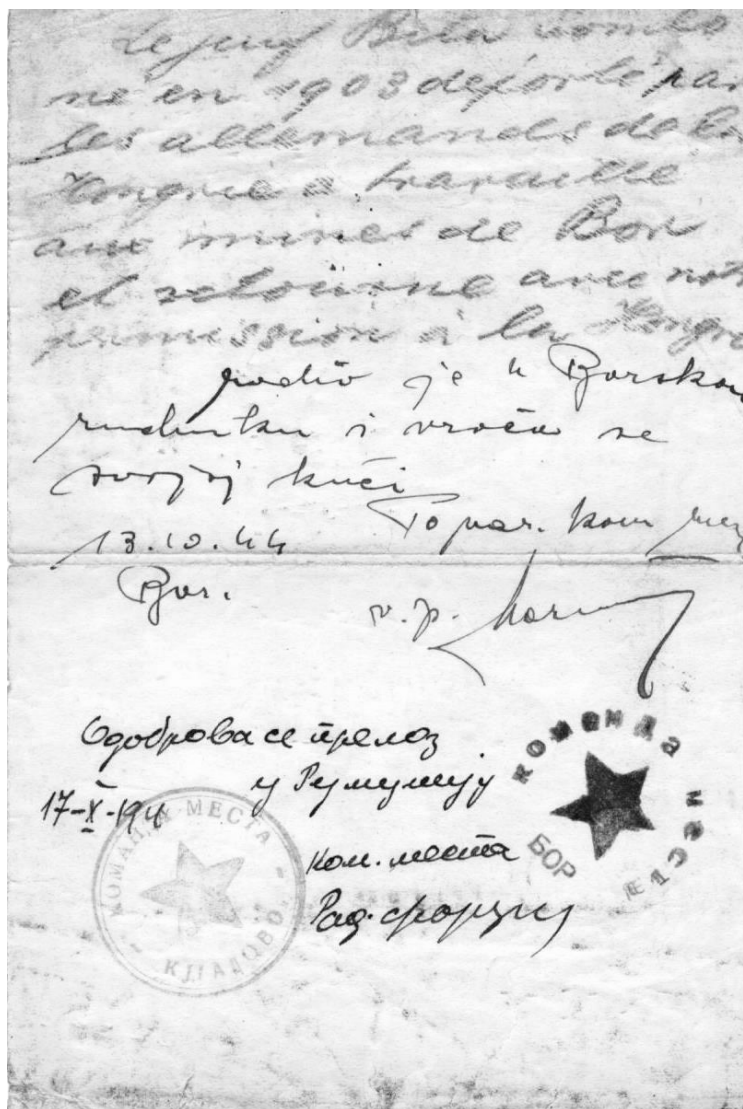 Le juif Bela
ne en 1903 deporté par
les allemands de la
Hongrie a travaillé
aux mines de Bor
et retourne avec notr
permission à la Hongr
radio je u Borskom
rudniku i vraća se
svojoj kući
13.10.44 Po nar. kom
Bor. v.p.
Одоброва се прелаз
у Румунију
17-X-194
ком. места
Рад.
КОМАНДА МЕСТА
БОР
КОМАНДА МЕСТА
КЛАДОВО